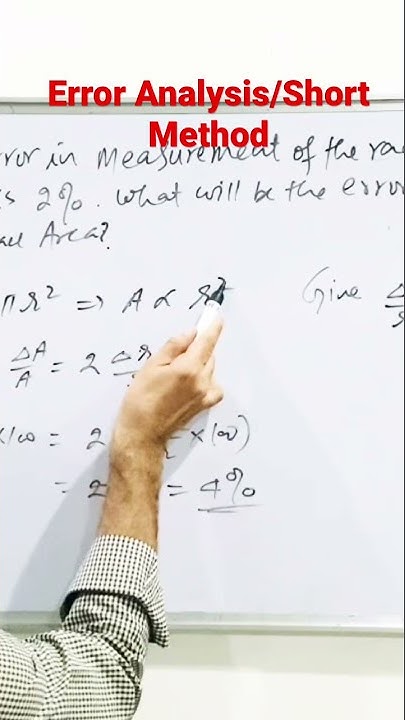 Error Analysis/Short
Method
rror in measurement of the ra
is 2%. What will be the error
Area?
πr² ⇒ A ∝ r²
Give Δ
ΔA/A = 2 Δr
x100 = 2 x100)
= 2 = 4%